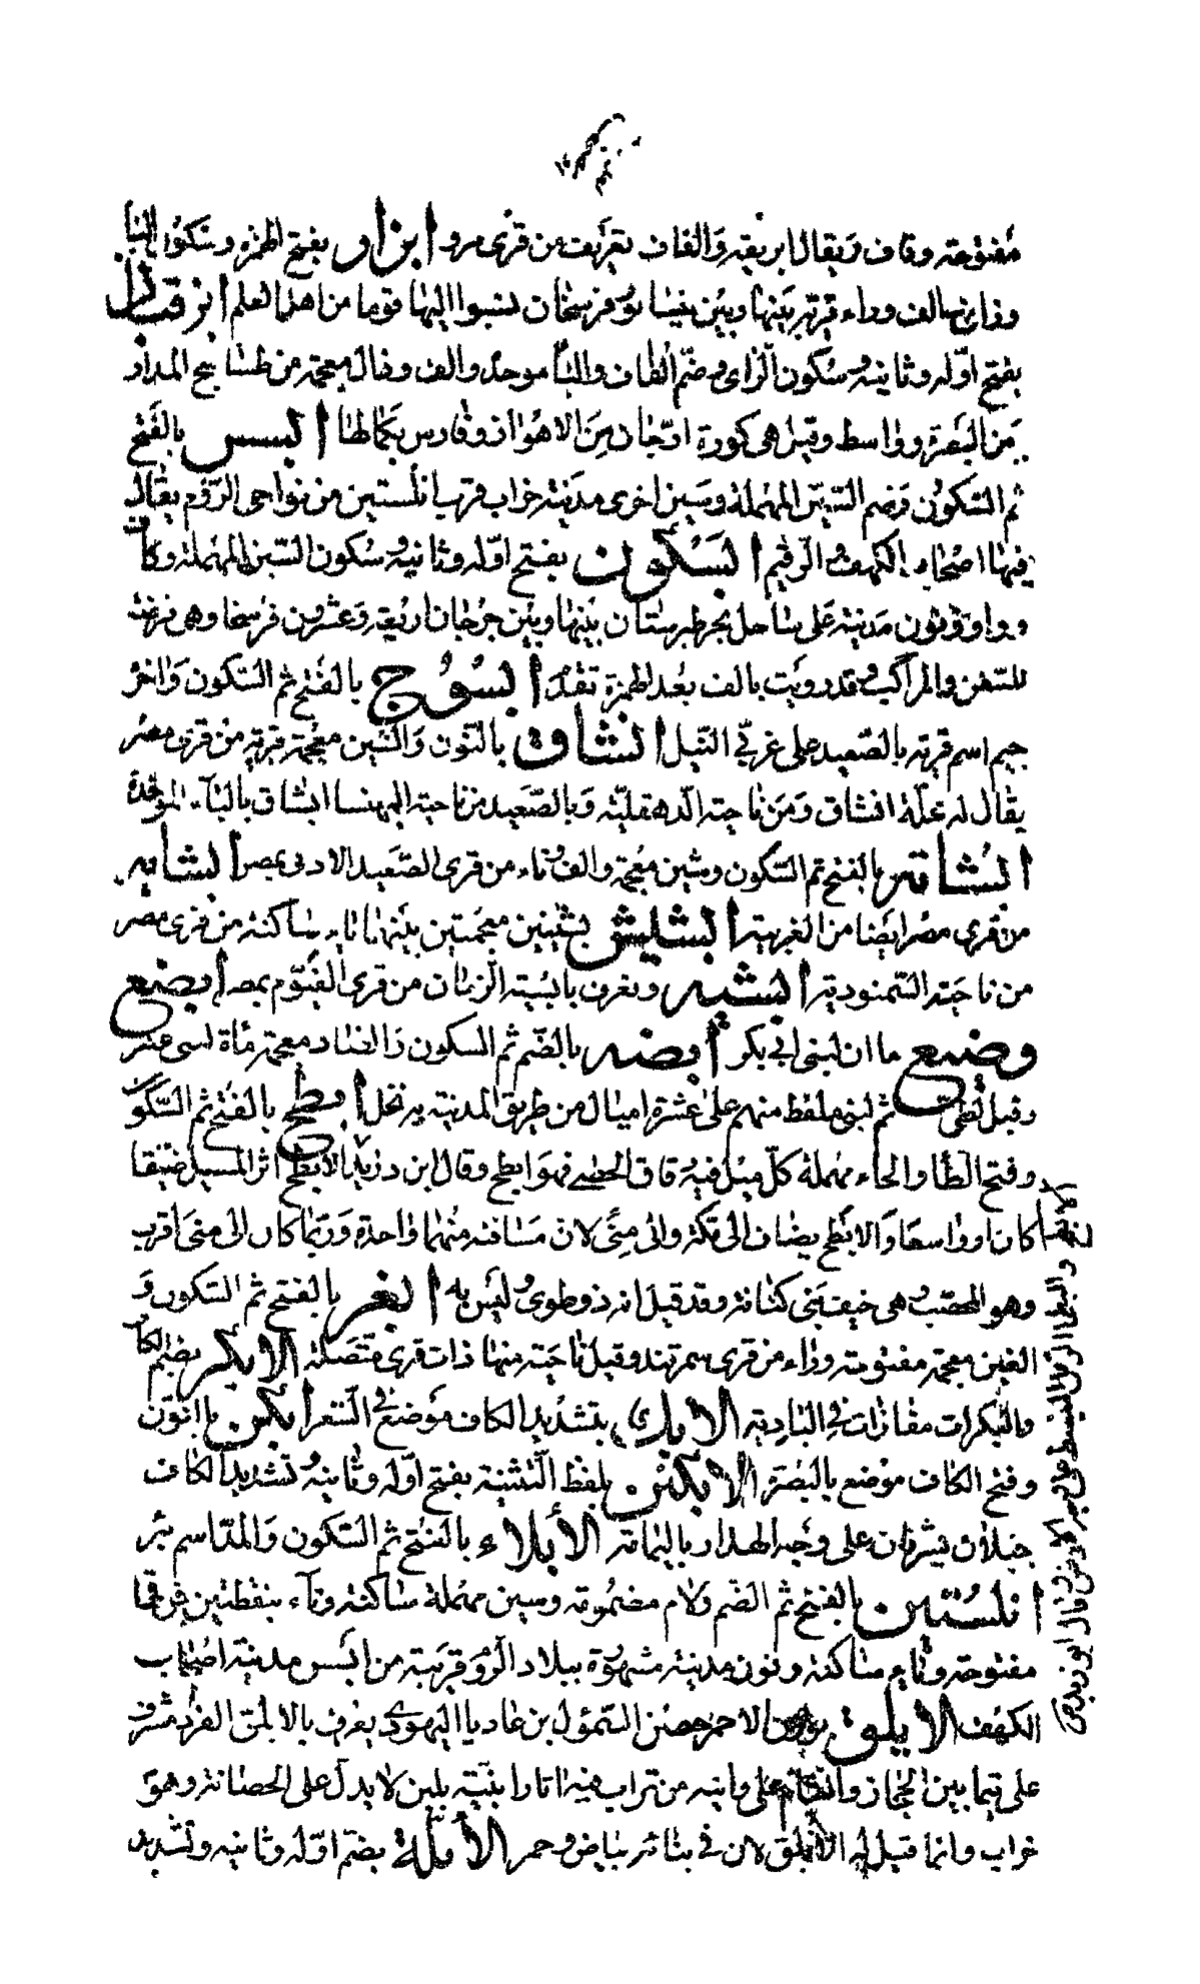 مفتوحة وقاف ويقال ابريقه والقاف تعريف من قرى مرو ابزار بفتح الهمزه وسكون البا
وزاى والف وراء قرية بينها وبين نيسابور فرسخان نسبوا اليها قوما من اهل العلم ابزقباذ
بفتح اوله وثانيه وسكون الزاى وضم القاف والبا موحدة والف وذال معجمة من طساسيج المدار
بين البصرة وواسط وقيل هى كورة ارجان بين الاهواز وفارس بكمالها ابسس بالفتح
ثم السكون وضم السين المهملة وسين اخرى مدينة خراب قرب ابلستين من نواحى الروم يقال
فيها اصحاب الكهف والرقيم ابسكون بفتح اوله وثانيه وسكون السين المهملة وكاف
وواو ونون مدينة على ساحل بحر طبرستان بينها وبين جرجان اربعة وعشرون فرسخا وهى فرضة
للسفن والمراكب وقد رويت بالف بعد الهمزة تقدم ابسوج بالفتح ثم السكون واخره
جيم اسم قرية بالصعيد على غربى النيل انشاق بالنون والشين معجمة قرية من قرى مصر
يقال له محلة انشاق ومن ناحية الدهقلية وبالصعيد من ناحية البهنسا ابشاق بالباء الموحدة
ابشاقة بالفتح ثم السكون وشين معجمة والف وتاء من قرى الصعيد الادنى بمصر ابشايه
من قرى مصر ايضا من الغربية ابشليش بشينين معجمتين بينهما ياء ساكنة من قرى مصر
من ناحية السمنودية ابشيه وتعرف بابشية الرمان من قرى الفيوم بمصر ابضع
وضبع ما ان لبنى ابى بكر ابضه بالضم ثم السكون والضاد معجمة ماة لبنى عنبر
وقيل لطى ثم لبنى ملقط منهم على عشرة اميال من طريق المدينة به نخل ابطح بالفتح ثم السكون
وفتح الطا والحاء مهملة كل مسيل فيه دقاق الحصى فهو ابطح وقال ابن دريد الابطح اثر المسيل ضيقا
كان او واسعا والابطح يضاف الى مكة والى منى لان مسافته منهما واحدة وربما كان الى منى اقرب
وهو المحصب وهى خيف بنى كنانة وقد قيل انه ذو طوى وليس به ابغر بالفتح ثم السكون و
الغين معجمة مفتوحة وراء من قرى سمرقند وقيل ناحية منها ذات قرى متصلة الابكر بضم الكاف
والبكرات مقازات فى البادية الابك بتشديد الكاف موضع فى الشعر ابكن بالنون
وفتح الكاف موضع بالبصرة الابكين بلفظ التثنية بفتح اوله وثانيه تشديد الكاف
جبلان يشرفان على وجه الهدار باليمامة الابلاء بالفتح ثم السكون والمد اسم بئر
ابلستين بالفتح ثم الضم ولام مضمومة وسين مهملة ساكنة وتاء بنقطتين فوقها
مفتوحة وياء ساكنة ونون مدينة مشهورة ببلاد الروم قريبة من ابسس مدينة اصحاب
الكهف الابلق بوزن الاحمر حصن السموئل بن عاديا اليهودى يعرف بالابلق الفرد مشرف
على تيما بين الحجاز والشام على رابيه من تراب فيه اثار ابنية بلبن لا يدل على الحصانة وهو
خراب وانما قيل له الابلق لان فى بنائه بياض وحمره الابلة بضم اوله وثانيه وتشديد